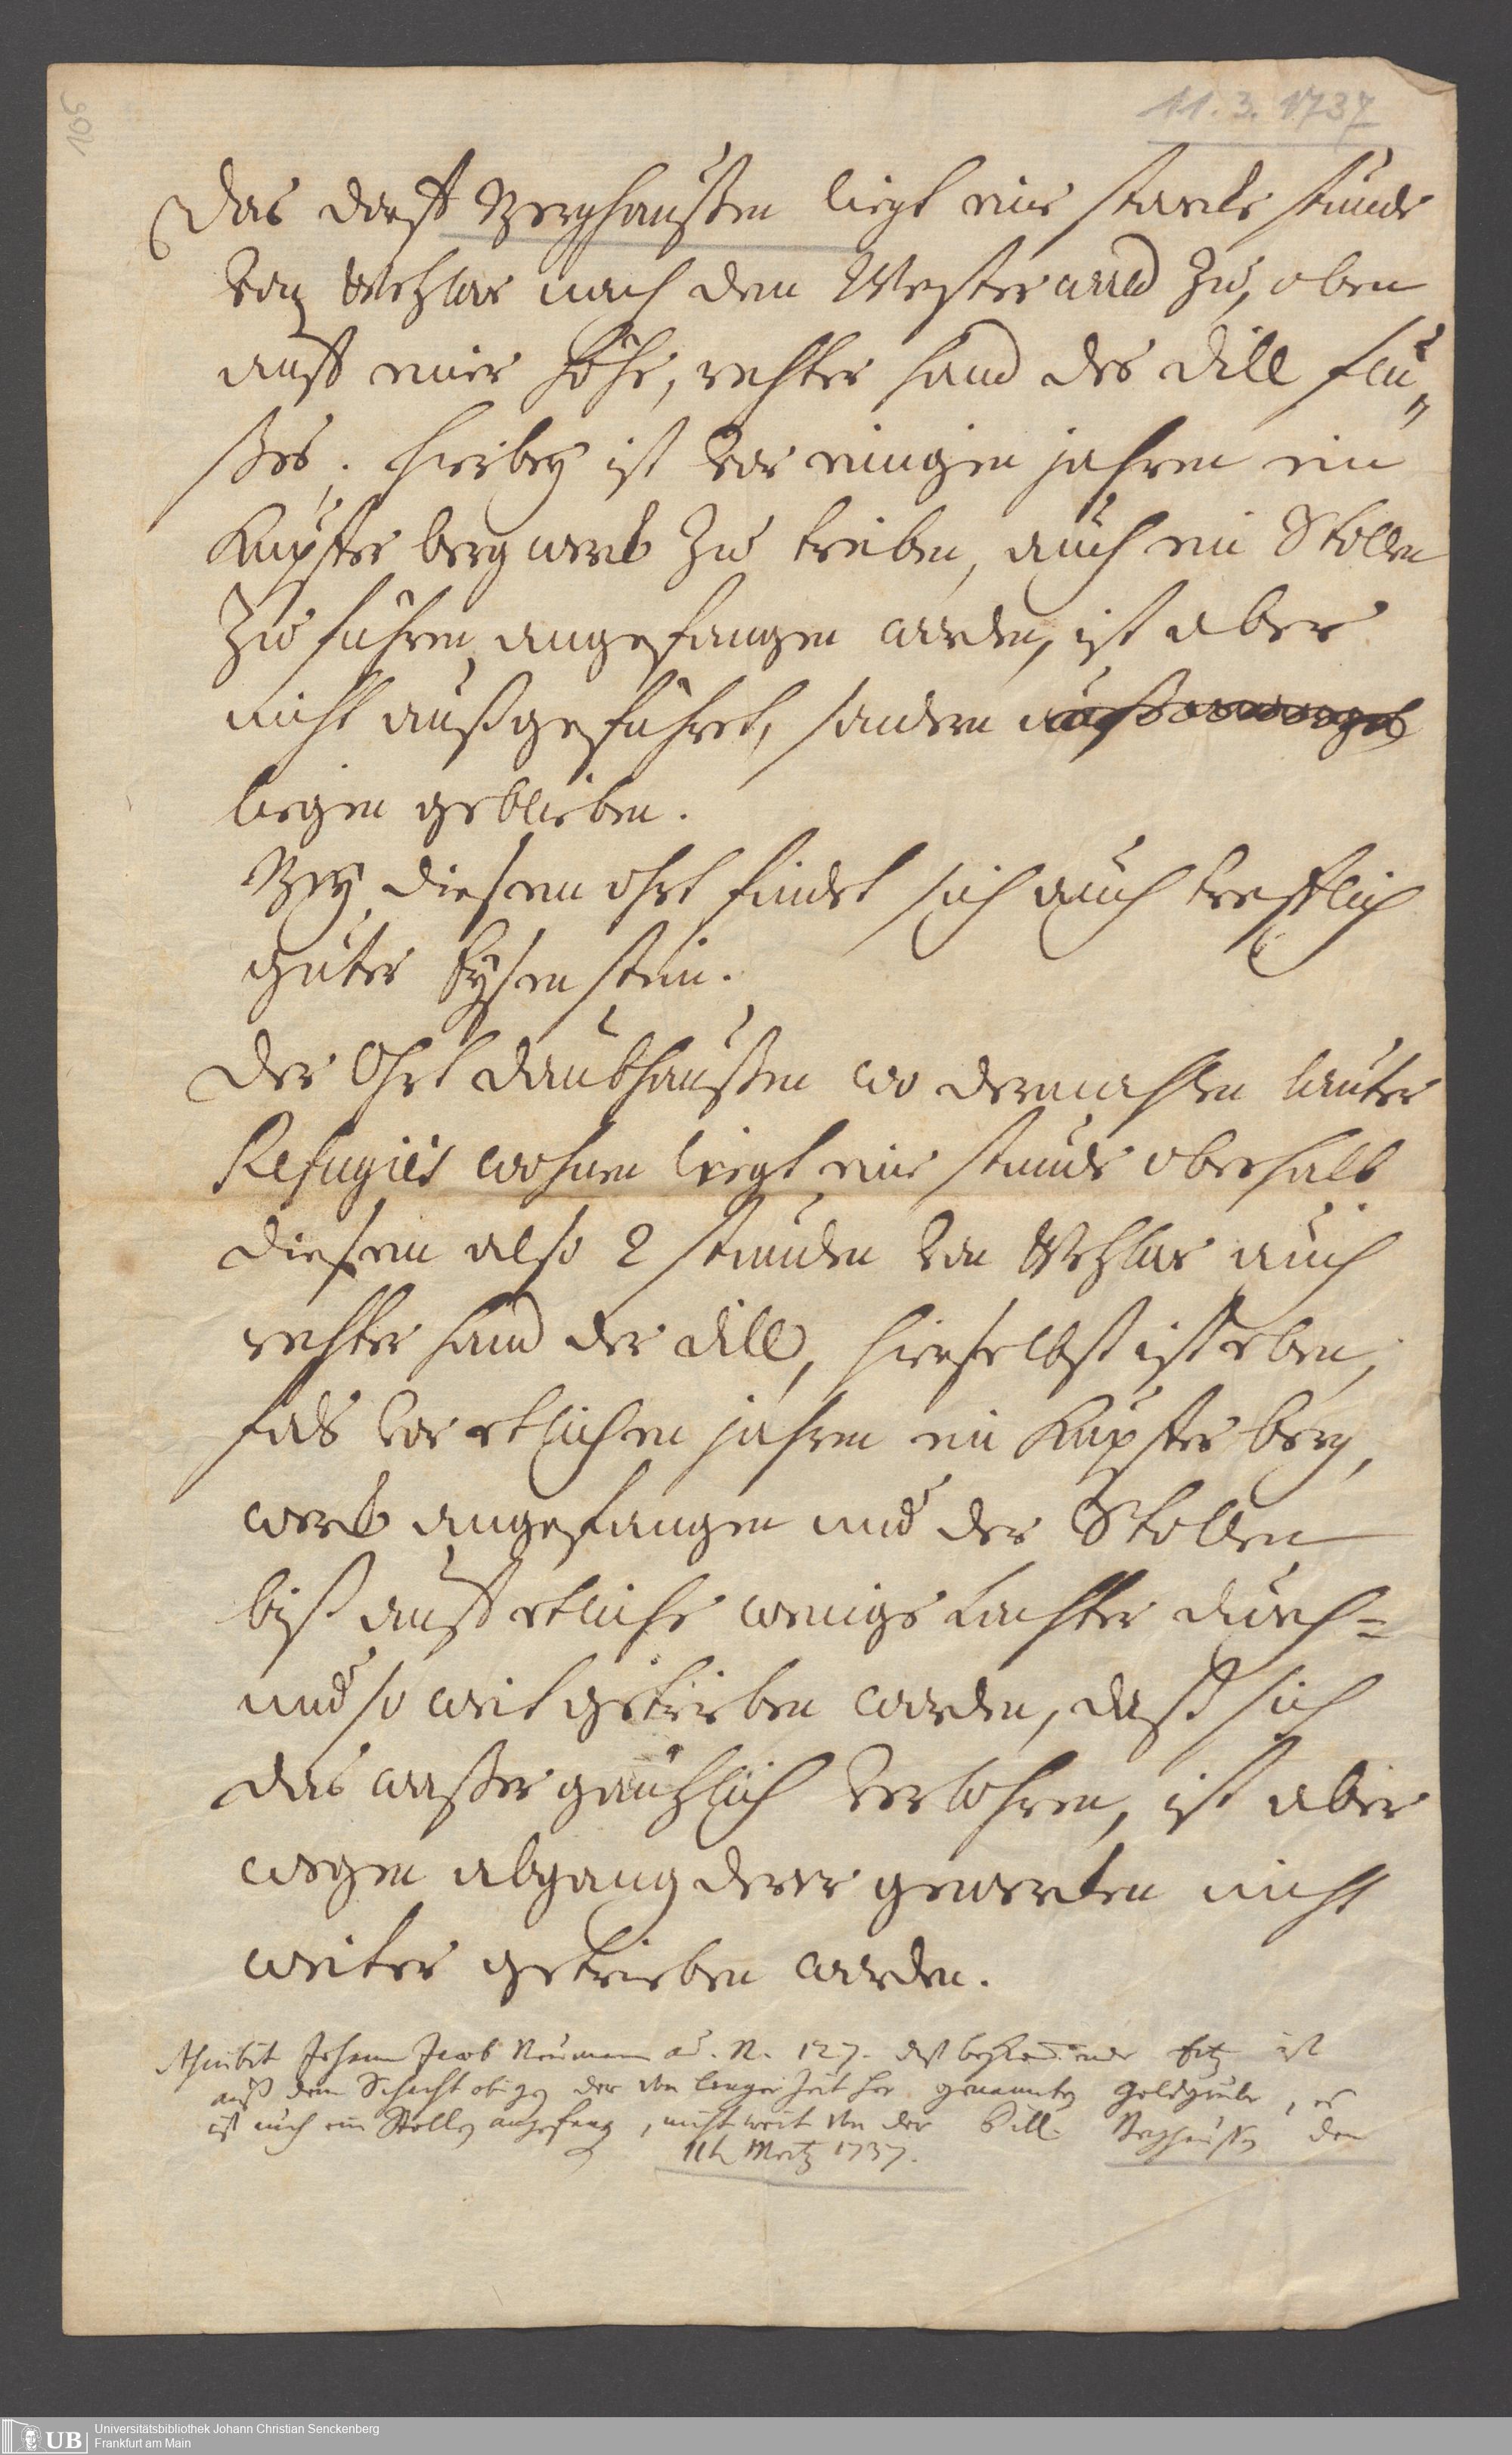 105
11. 3. 1737
Das dorff Berghaußen liegt eine starcke stunde
von Wetzlar nach dem Westerwald zu, oben
auff einer Höhe, rechter hand des Dill flu„
ßes. hierbey ist vor einigen jahren ein
Kupffer bergwerck zu treiben, auch ein Stollen
zu führen, angefangen worden, ist aber
nicht außgeführet, sondern
liegen geblieben.
Bey diesem ohrt findet sich auch trefflich
guter Eysenstein.
Der Ohrt Daubhaußen wo dermahlen lauter
Refugiés wohnen liegt eine stunde oberhalb
diesem also 2 stunden von Wetzlar auch
rechter hand der Dill, hierselbst ist eben,
fals vor etlichen jahren ein Kupffer berg,
werck angefangen und der Stollen
biß auff etliche wenige Lachter durch=
und so weit getrieben worden, daß sich
das waßer gäntzlich verlohren, ist aber
wegen abgang derer gewercken nicht
weiter getrieben worden.
Johann Jacob Neumann N. 127. Ertz ist
auß dem Schacht der von langer Zeit her genannten Goldgrube, es
ist auch ein Stollen angefang, nicht weit von der Dill. Berghaußen den
11t Mertz 1737.
UB Universitätsbibliothek Johann Christian Senckenberg
Frankfurt am Main